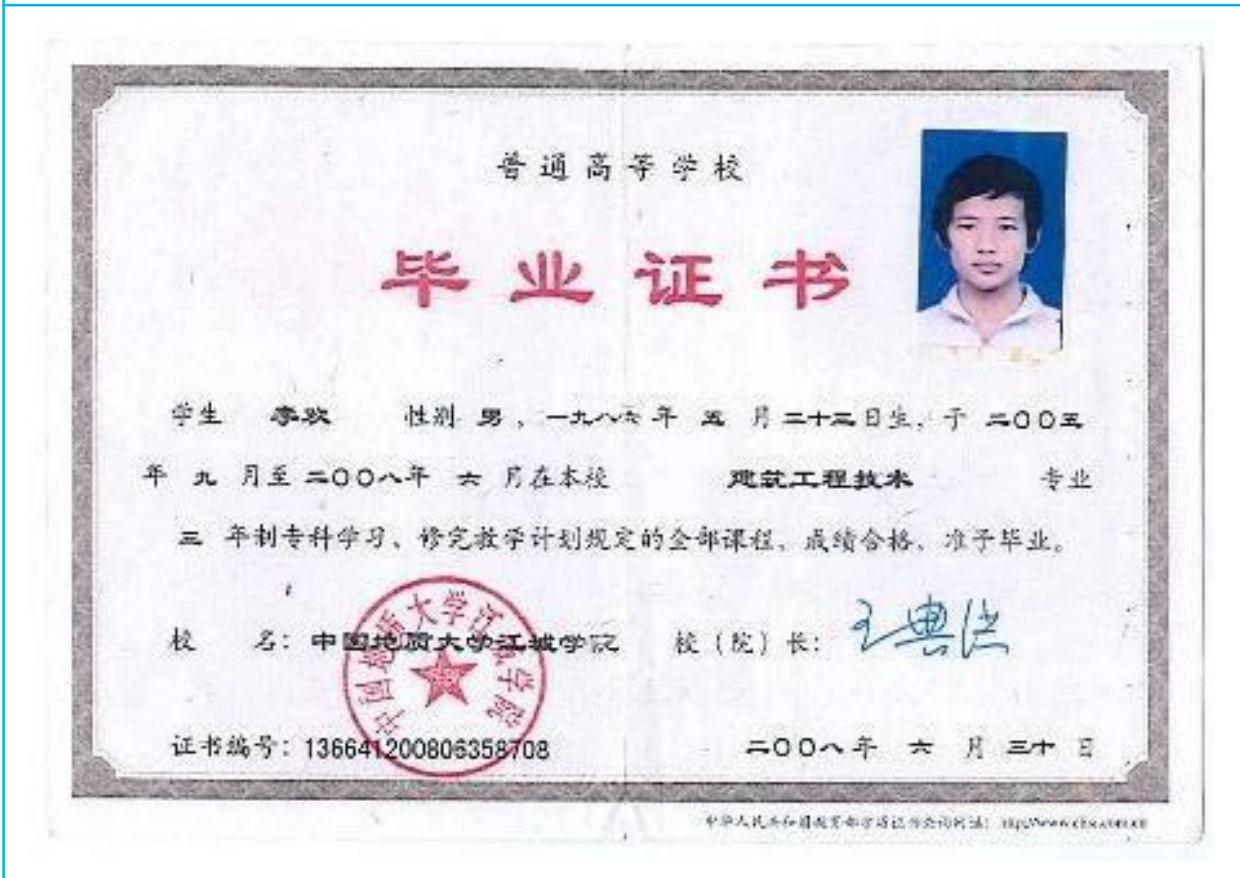 普通高等学校
毕业证书
学生 李欢 性别 男，一九八六年 五 月二十三日生，于 二〇〇五
年 九 月至 二〇〇八年 六 月在本校 建筑工程技术 专业
三 年制专科学习、修完教学计划规定的全部课程，成绩合格，准予毕业。
校 名：中国地质大学江城学院 校（院）长：王典洪
中国地质大学江城学院
证书编号：136641200806358708 二〇〇八年 六 月 三十 日
中华人民共和国教育部学历证书查询网址：